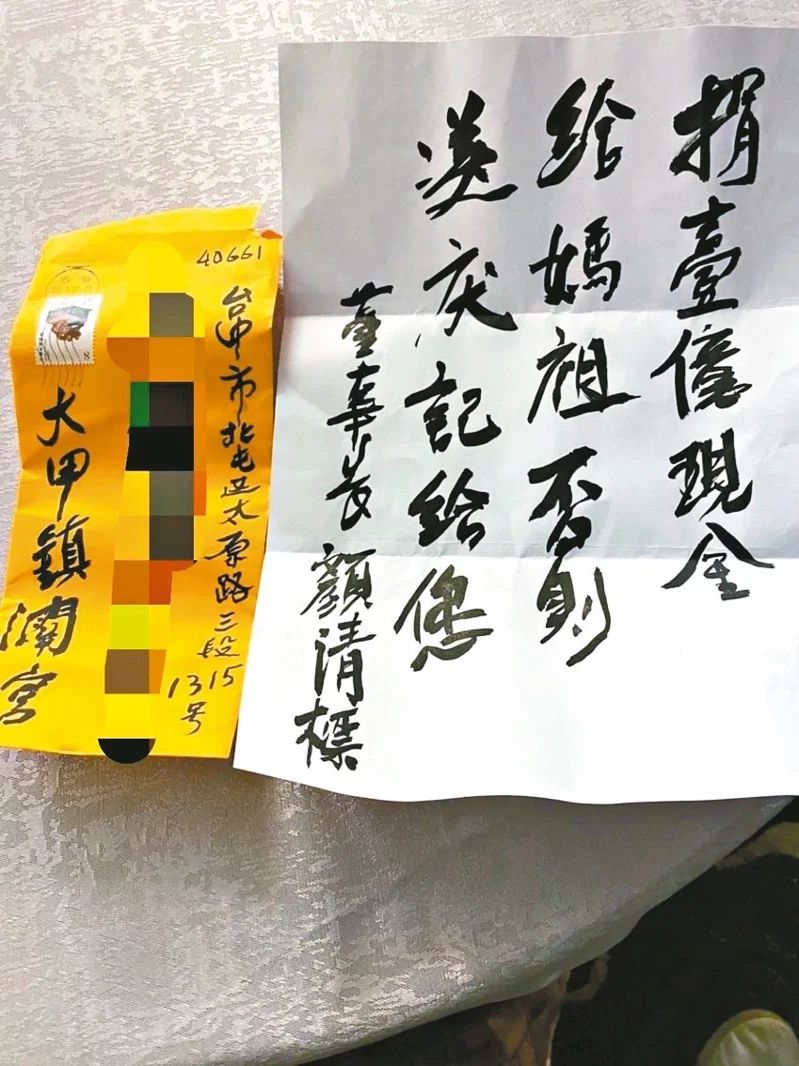 捐壹億現金
給媽祖否則
送庆記給您
董事長顏清標
40661
台中市北屯区太原路三段1315号
大甲鎮瀾宮
8